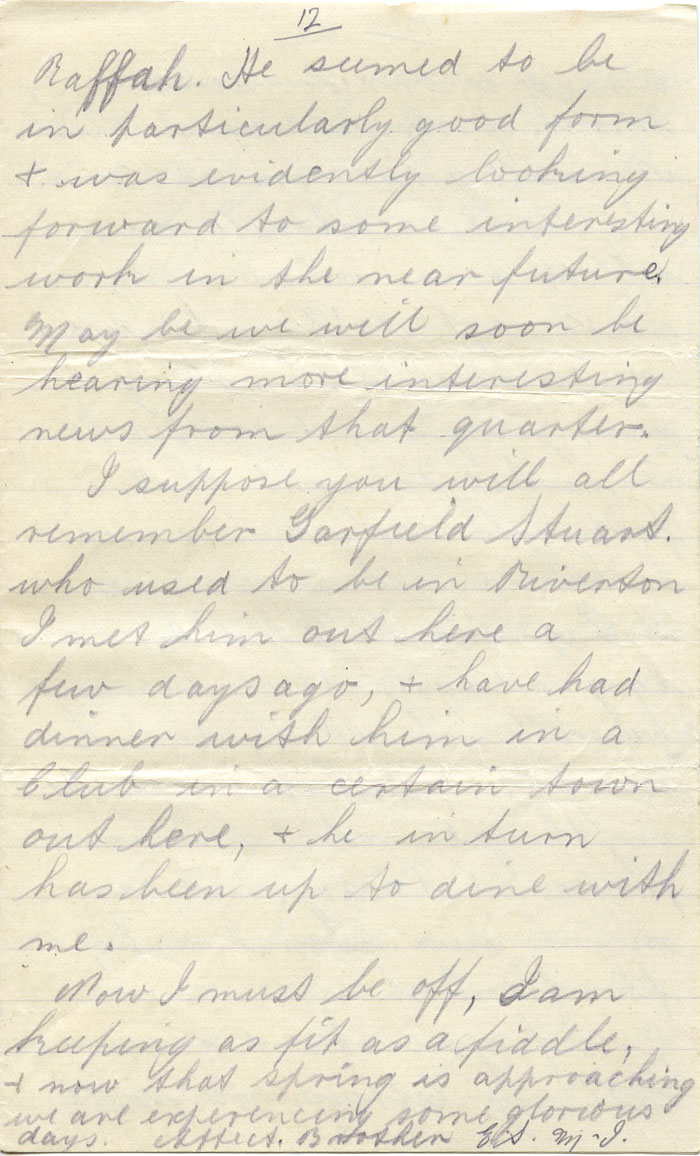 12
Raffah. He seemed to be
in particularly good form
+ was evidently looking
forward to some interesting
work in the near future.
May be we will soon be
hearing more interesting
news from that quarter.
I suppose you will all
remember Garfield Stuart.
who used to be in Riverton
I met him out here a
few days ago, + have had
dinner with him in a
Club in a certain town
out here, + he in turn
has been up to dine with
me.
Now I must be off, I am
keeping as fit as a fiddle,
+ now that spring is approaching
we are experiencing some glorious
days. Affect. Brother E.S. M-J.